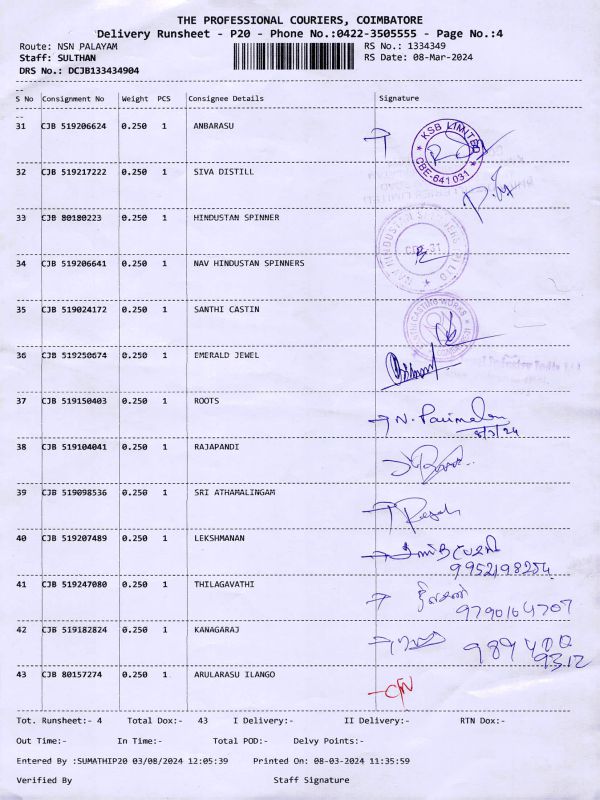 THE PROFESSIONAL COURIERS, COIMBATORE
Delivery Runsheet - P20 - Phone No.:0422-3505555 - Page No.:4
Route: NSN PALAYAM RS No.: 1334349
Staff: SULTHAN RS Date: 08-Mar-2024
DRS No.: DCJB133434904
S No Consignment No Weight PCS Consignee Details Signature
31 CJB 519206624 0.250 1 ANBARASU
KSB LIMITED
CBE-641 031
32 CJB 519217222 0.250 1 SIVA DISTILL
33 CJB 80180223 0.250 1 HINDUSTAN SPINNER
34 CJB 519206641 0.250 1 NAV HINDUSTAN SPINNERS
35 CJB 519024172 0.250 1 SANTHI CASTIN
36 CJB 519250674 0.250 1 EMERALD JEWEL
37 CJB 519150403 0.250 1 ROOTS
N. Parimala
8/3/24
38 CJB 519104041 0.250 1 RAJAPANDI
39 CJB 519098536 0.250 1 SRI ATHAMALINGAM
40 CJB 519207489 0.250 1 LEKSHMANAN
9952198254
41 CJB 519247080 0.250 1 THILAGAVATHI
9790164707
42 CJB 519182824 0.250 1 KANAGARAJ
43 CJB 80157274 0.250 1 ARULARASU ILANGO
Tot. Runsheet:- 4 Total Dox:- 43 I Delivery:- II Delivery:- RTN Dox:-
Out Time:- In Time:- Total POD:- Delvy Points:-
Entered By :SUMATHIP20 03/08/2024 12:05:39 Printed On: 08-03-2024 11:35:59
Verified By Staff Signature